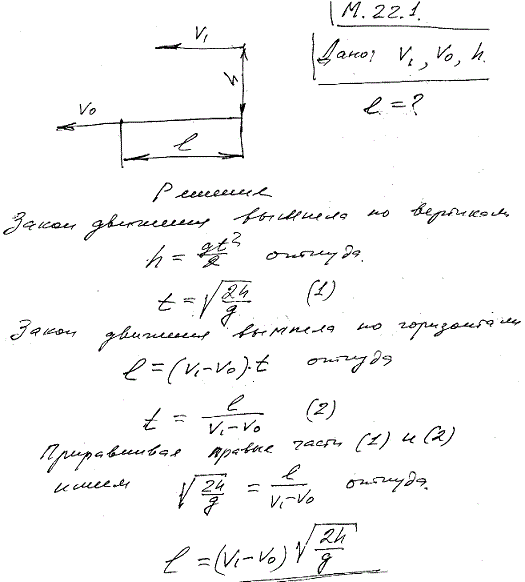 М. 22.1.
Дано: V₁, V₀, h.
l = ?
V₁
h
V₀
l
Решение
Закон движения вымпела по вертикали
h = gt²/2 откуда.
t = √(2h/g) (1)
Закон движения вымпела по горизонтали
l = (V₁-V₀)·t откуда
t = l/(V₁-V₀) (2)
Приравнивая правые части (1) и (2)
имеем √(2h/g) = l/(V₁-V₀) откуда.
l = (V₁-V₀)√(2h/g)